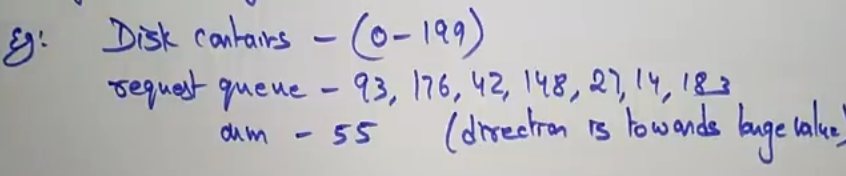 Eg: Disk contains - (0-199)
request queue - 93, 176, 42, 148, 27, 14, 183
arm - 55 (direction is towards large value)